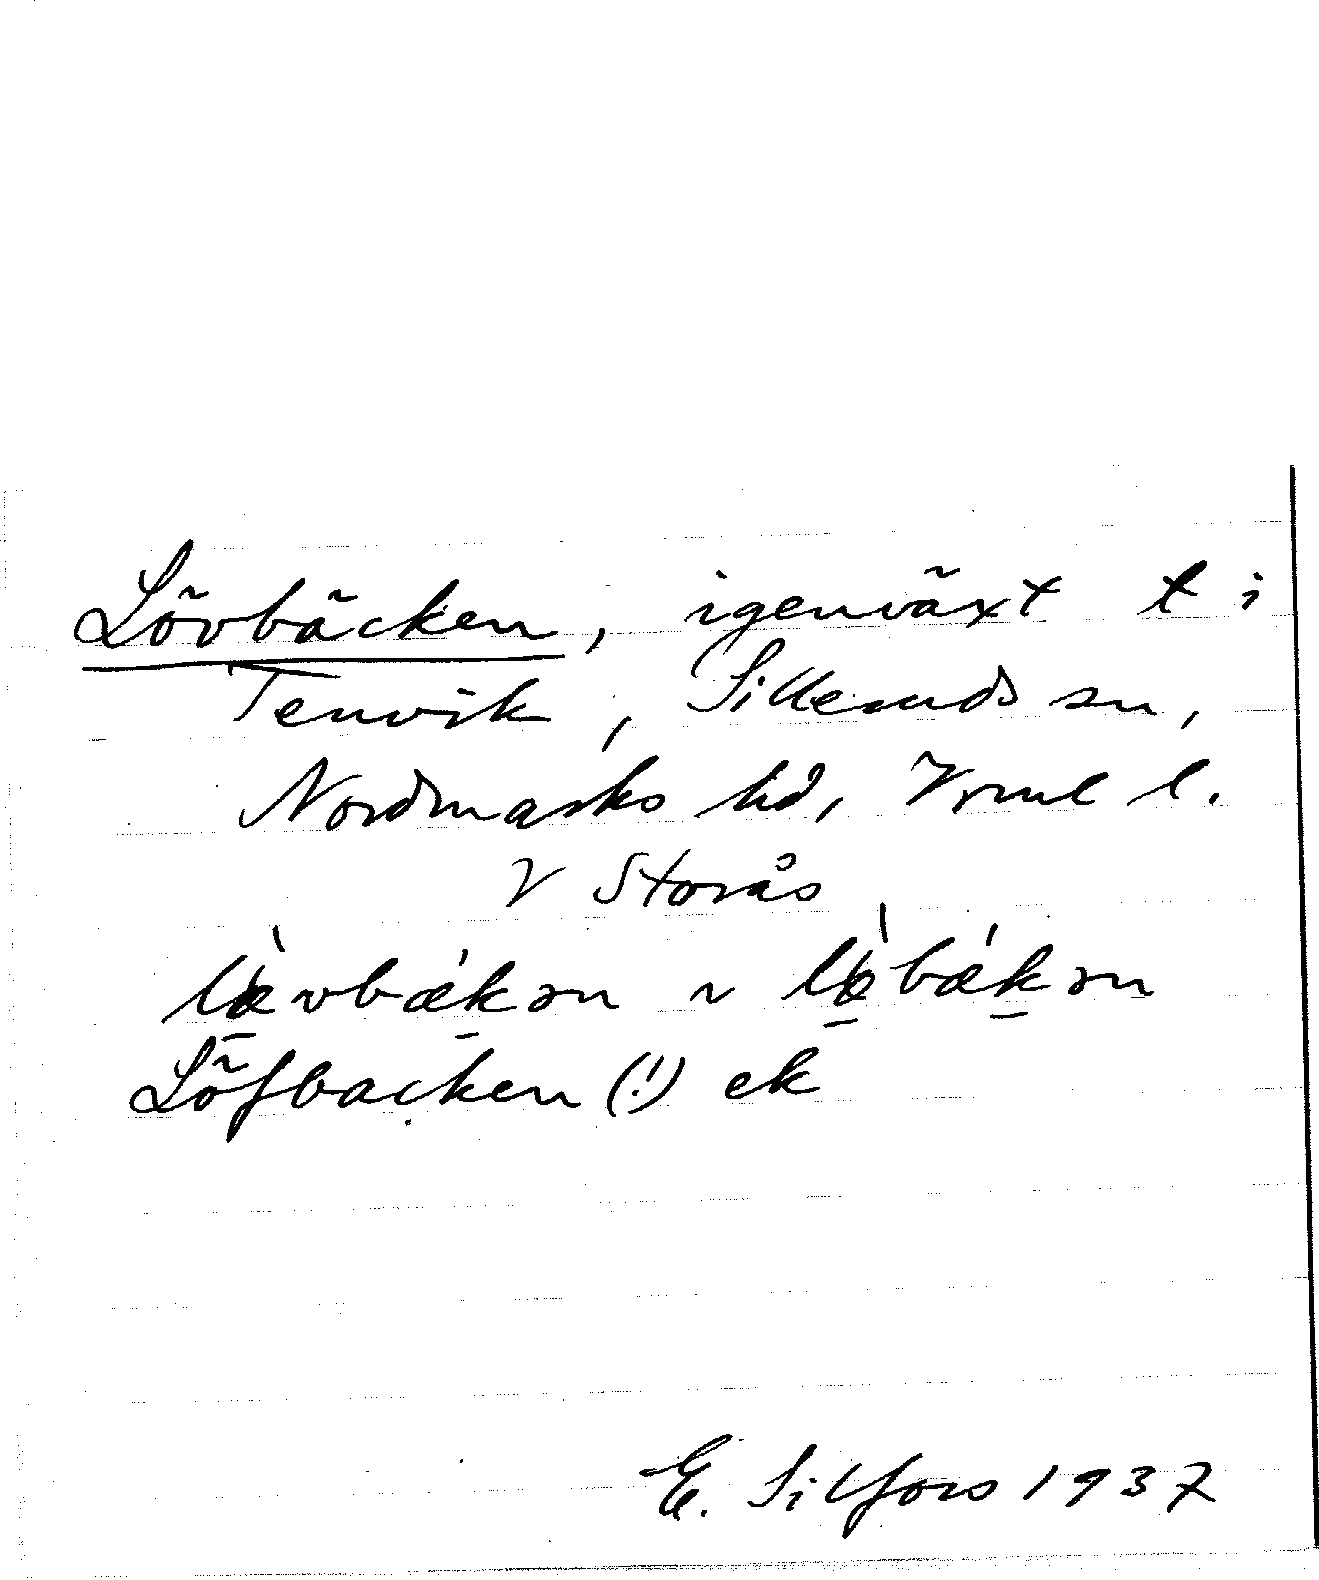 Lövbäcken, igenväxt t i
Tenvik, Silleruds sn,
Nordmarks hd, Vrml l.
V Storås
lævbækən ~ læbækən
Löfbacken (!) ek
E. Silfors 1937